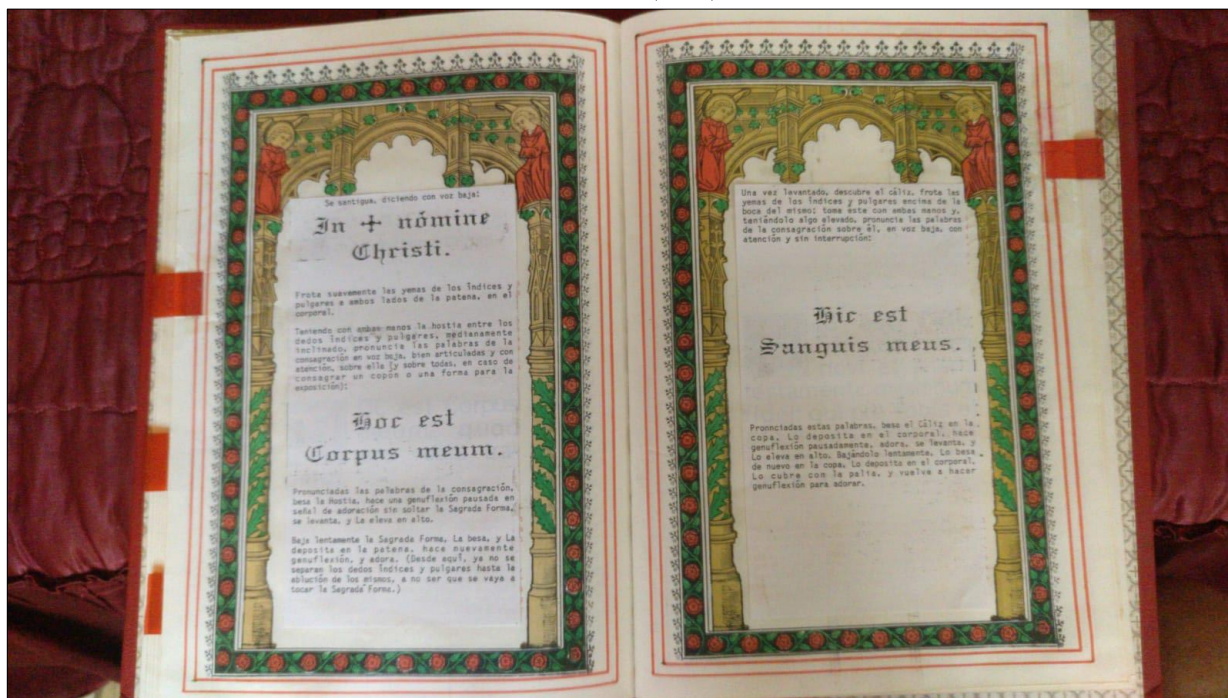 Se santigua, diciendo con voz baja:
In ✠ nómine
Christi.
Frota suavemente las yemas de los índices y
pulgares a ambos lados de la patena, en el
corporal.
Teniendo con ambas manos la hostia entre los
dedos índices y pulgares, medianamente
inclinado, pronuncia las palabras de la
consagración en voz baja, bien articuladas y con
atención, sobre ella (y sobre todas, en caso de
consagrar un copón o una forma para la
exposición):
Hoc est
Corpus meum.
Pronunciadas las palabras de la consagración,
besa la Hostia, hace una genuflexión pausada en
señal de adoración sin soltar la Sagrada Forma,
se levanta, y La eleva en alto.
Baja lentamente la Sagrada Forma, La besa, y La
deposita en la patena, hace nuevamente
genuflexión, y adora. (Desde aquí, ya no se
separan los dedos índices y pulgares hasta la
ablución de los mismos, a no ser que se vaya a
tocar la Sagrada Forma.)
Una vez levantado, descubre el cáliz, frota les
yemas de los índices y pulgares encima de la
boca del mismo; toma este con ambas manos y,
teniéndolo algo elevado, pronuncia las palabras
de la consagración sobre él, en voz baja, con
atención y sin interrupción:
Hic est
Sanguis meus.
Pronnciadas estas palabras, besa el Cáliz en la
copa. Lo deposita en el corporal, hace
genuflexión pausadamente, adora, se levanta, y
Lo eleva en alto. Bajándolo lentamente, Lo besa
de nuevo en la copa, Lo deposita en el corporal,
Lo cubre con la palia, y vuelve a hacer
genuflexión para adorar.